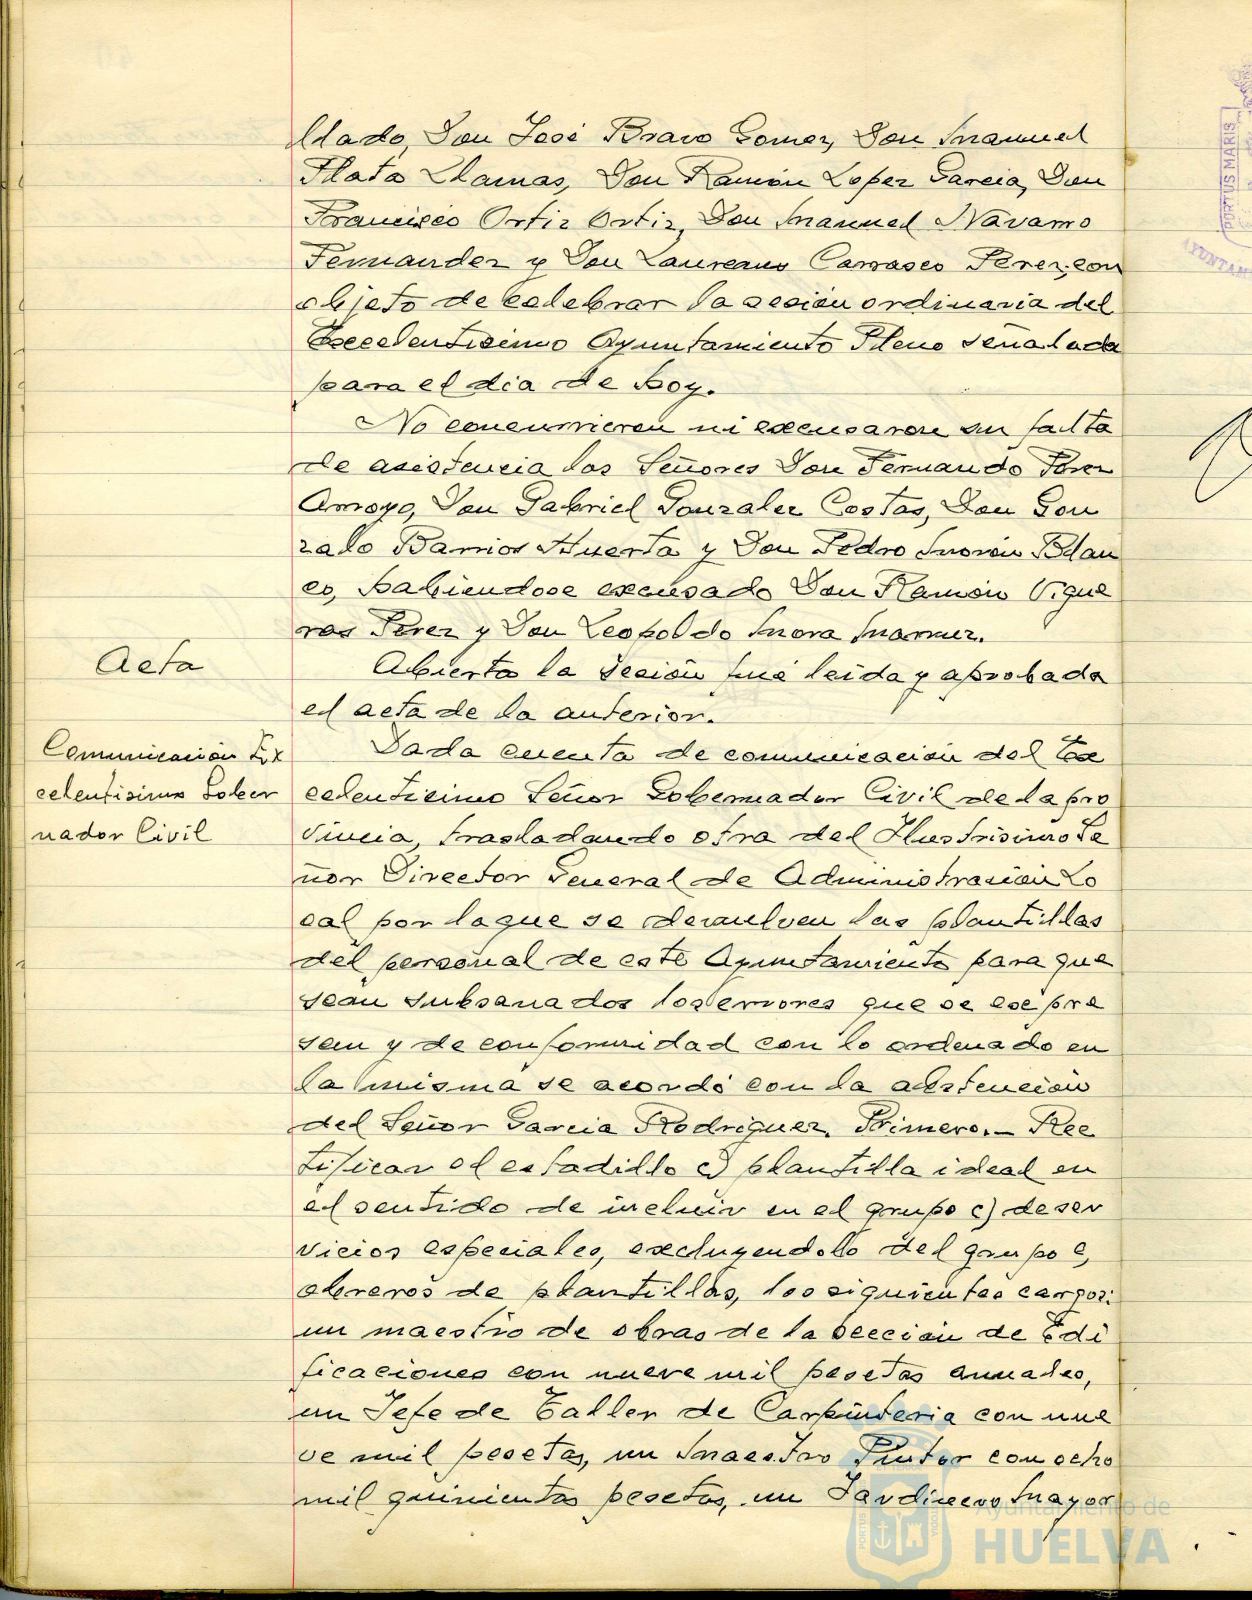 llado, Don José Bravo Gomez, Don Manuel
Plata Llamas, Don Ramón Lopez Garcia, Don
Francisco Ortiz Ortiz, Don Manuel Navarro
Fernandez y Don Laureano Carrasco Perez, con
objeto de celebrar la sesión ordinaria del
Excelentisimo Ayuntamiento Pleno señalada
para el dia de hoy.
No concurrieron ni excusaron su falta
de asistencia los Señores Don Fernando Perez
Arroyo, Don Gabriel Gonzalez Costas, Don Gon
zalo Barrios Huerta y Don Pedro Morón Blan
co, habiendose excusado Don Ramón Vigue
ras Perez y Don Leopoldo Mora
Acta
Abierta la sesión fué leida y aprobada
el acta de la anterior.
Comunicación Ex
celentisimo Gober
nador Civil
Dada cuenta de comunicación del Ex
celentisimo Señor Gobernador Civil de la pro
vincia, trasladando otra del Ilustrisimo Se
ñor Director General de Administración Lo
cal por la que se devuelven las plantillas
del personal de este Ayuntamiento para que
sean subsanados los errores que se expre
san y de conformidad con lo ordenado en
la misma se acordó con la abstención
del Señor Garcia Rodriguez. Primero.- Rec
tificar el estadillo c) plantilla ideal en
el sentido de incluir en el grupo c) de ser
vicios especiales, excluyendolo del grupo e,
obreros de plantillas, los siguientes cargos:
un maestro de obras de la sección de Edi
ficaciones con nueve mil pesetas anuales,
un Jefe de Taller de Carpinteria con nue
ve mil pesetas, un Maestro Pintor con ocho
mil quinientas pesetas, un Jardinero Mayor
Ayuntamiento de
HUELVA
PORTUS MARIS